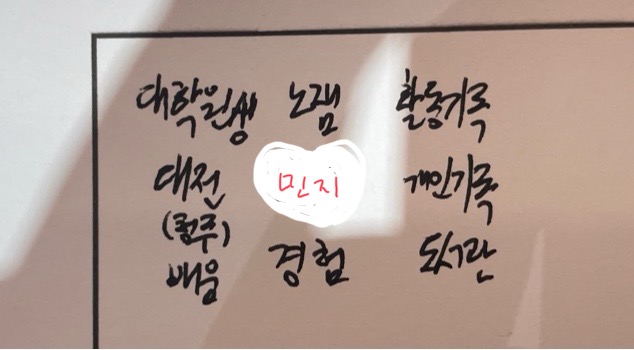 대학원생 노잼 활동기록
대전 민지 개인기록
(청주)
배움 경험 도서관